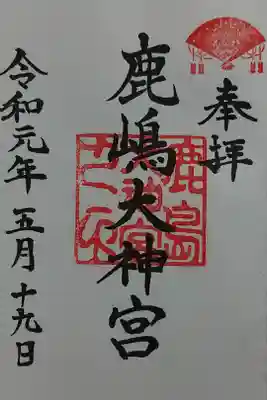 奉拝
鹿嶋大神宮
令和元年五月十九日